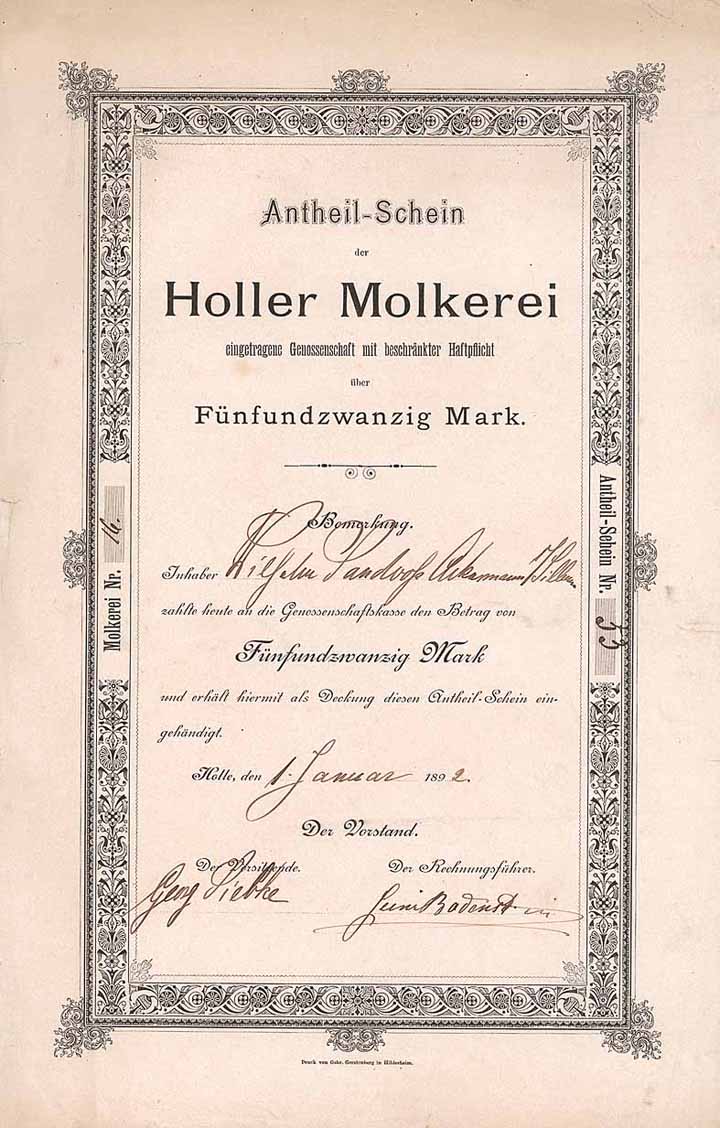 Antheil-Schein
der
Holler Molkerei
eingetragene Genossenschaft mit beschränkter Haftpflicht
über
Fünfundzwanzig Mark.
Molkerei Nr. 16.
Antheil-Schein Nr. 33
Bemerkung.
Inhaber Wilhelm Sandvoß Ackermann
zahlte heute an die Genossenschaftskasse den Betrag von
Fünfundzwanzig Mark
und erhält hiermit als Deckung diesen Antheil-Schein ein-
gehändigt.
Holle, den 1. Januar 1892.
Der Vorstand.
Der Vorsitzende. Der Rechnungsführer.
Georg Siebke
Druck von Gebr. Gerstenberg in Hildesheim.